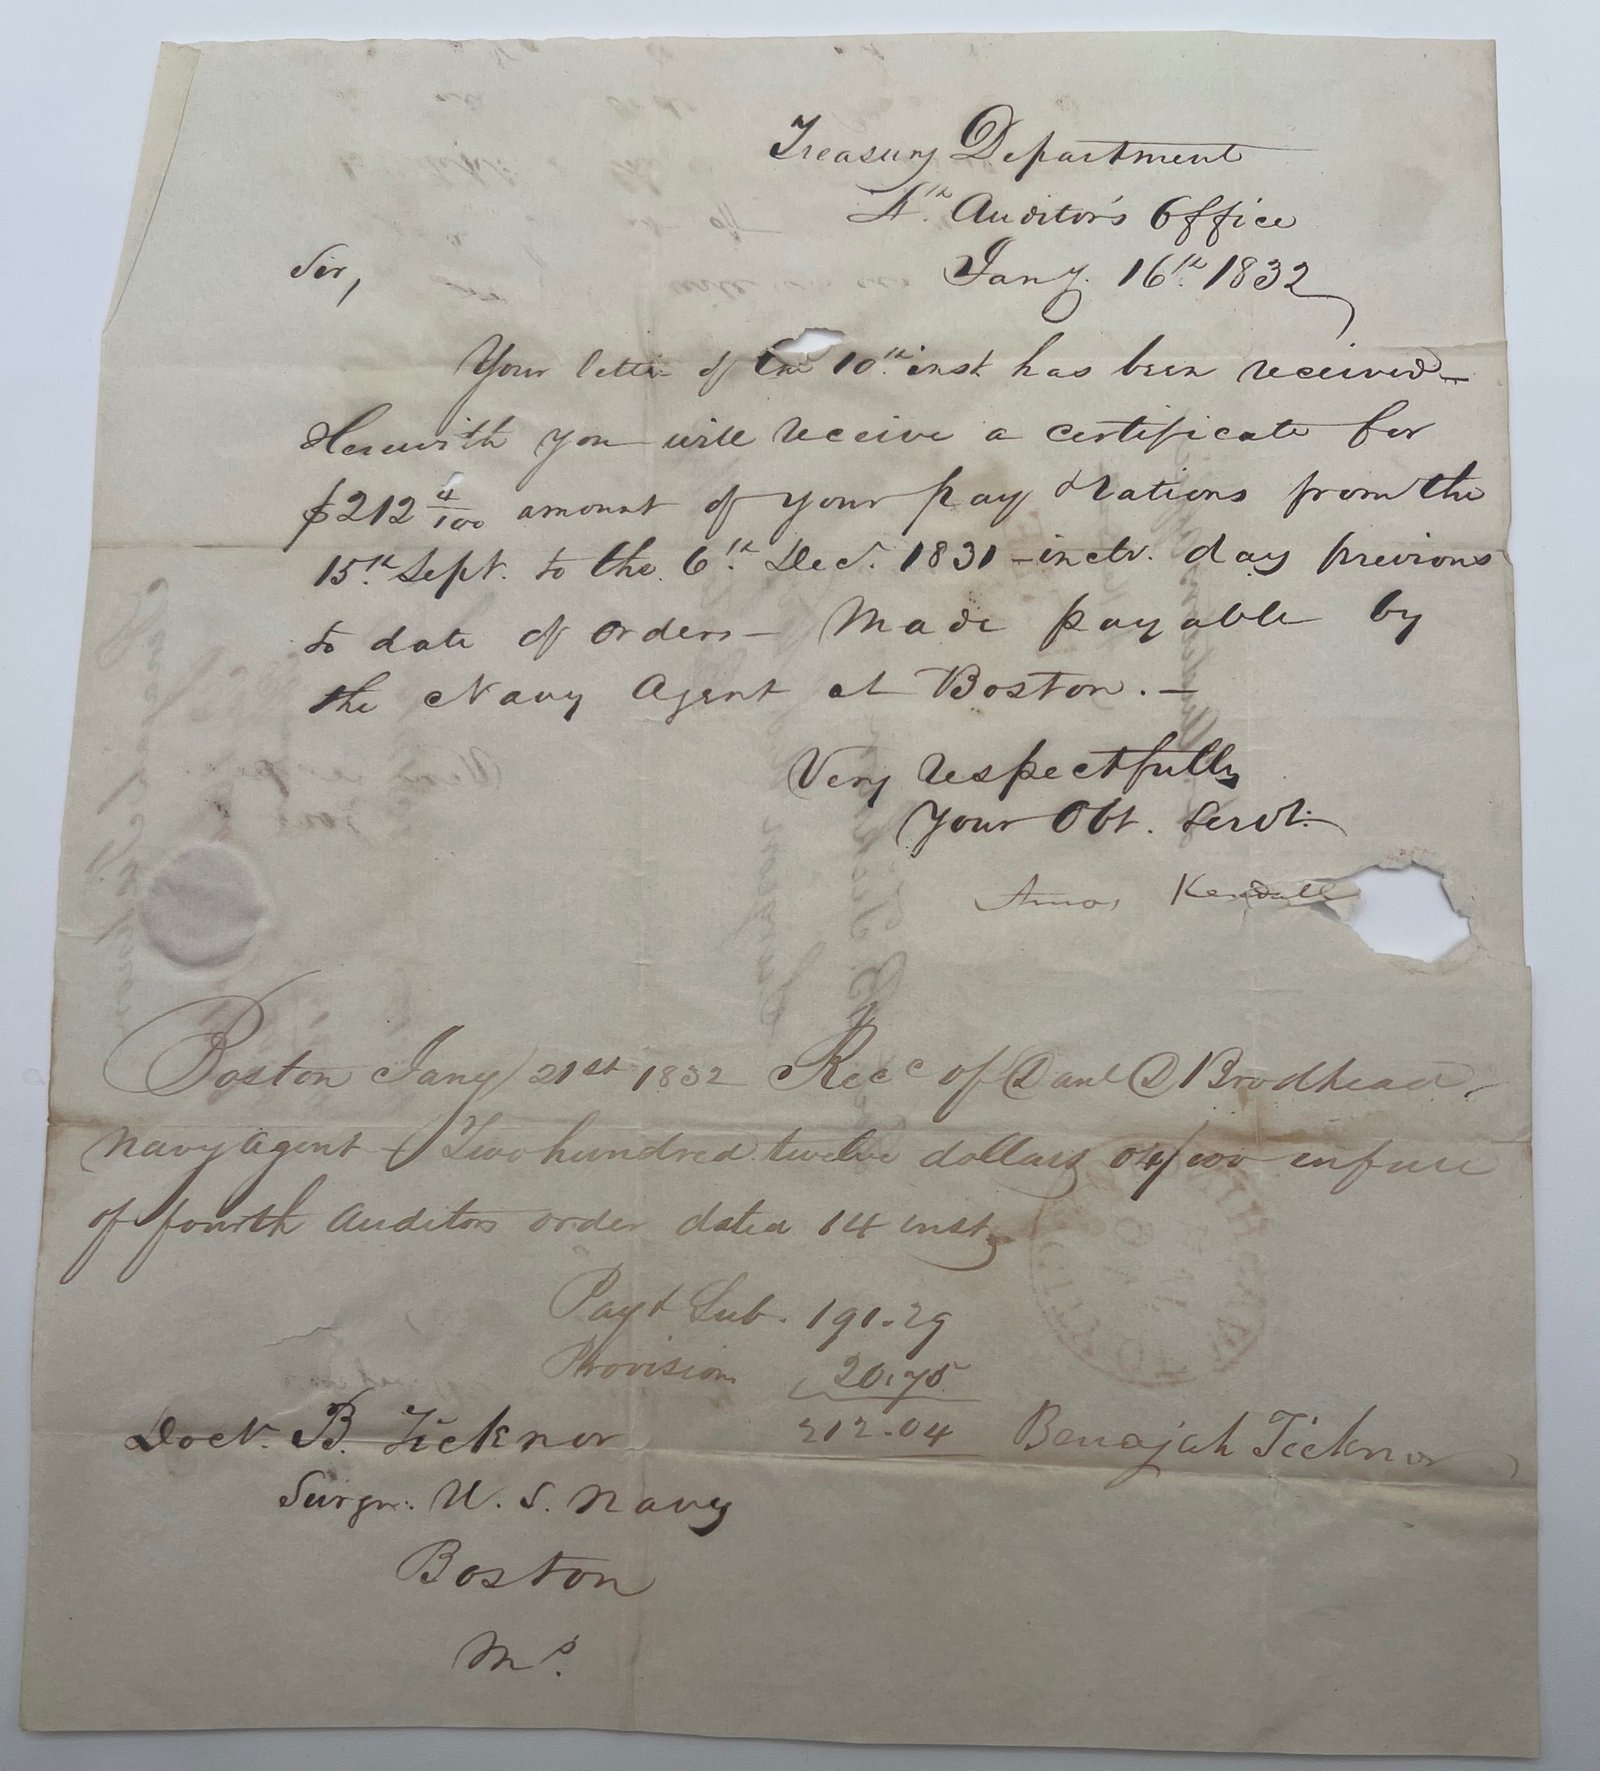 Treasury Department
4th. Auditor's Office
Jany. 16th. 1832
Sir,
Your letter of the 10th. inst has been received—
Herewith you will receive a certificate for
$212 4/100 amount of your pay & Rations from the
15th. Sept. to the 6th. Dec. 1831 - inclv. day previous
to date of orders— Made payable by
the Navy Agent at Boston.—
Very respectfully
Your Obt. Servt.
Amos Kendall
Boston Jany 21st 1832 Recd of Danl D Brodhead
Navy Agent— Two hundred twelve dollars 04/100 in full
of fourth Auditors order dated 14 inst
Pay & Sub. 191.29
Provision 20.75
212.04 Benajah Ticknor
Doct. B. Ticknor
Surgn. U. S. Navy
Boston
Ms.